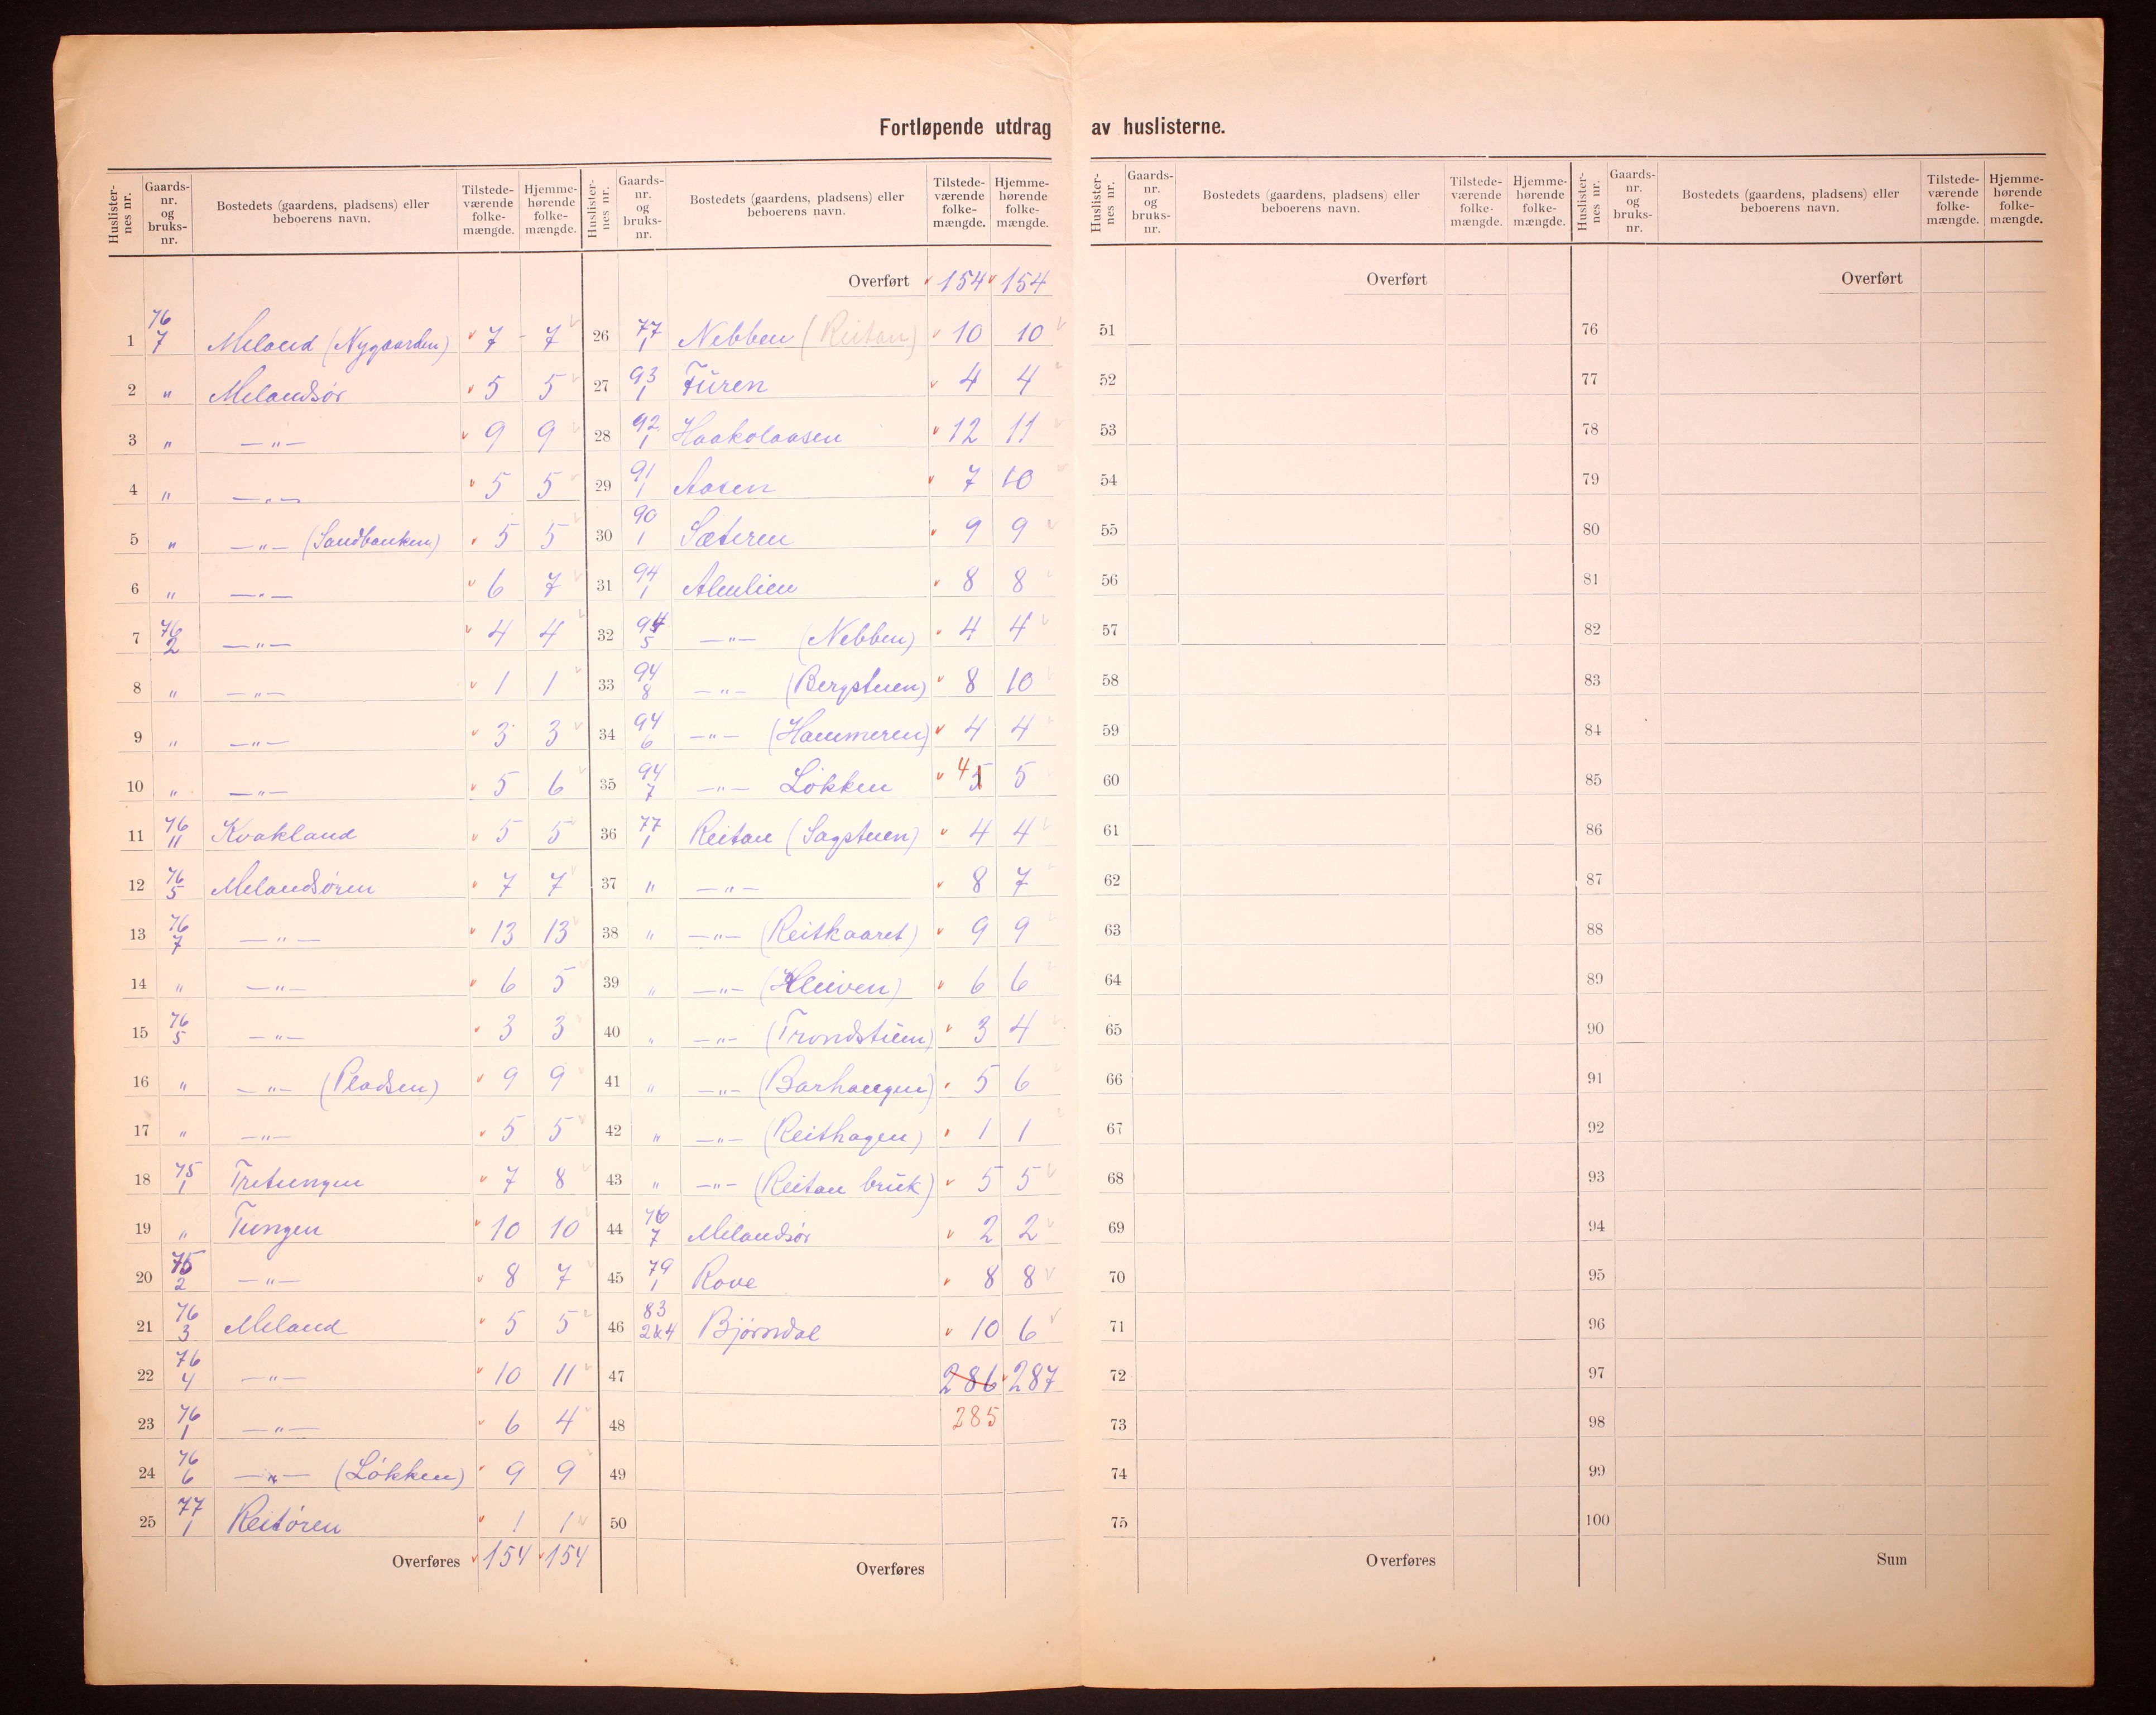 Fortløpende utdrag av huslisterne.
Huslister-nes nr. | Gaards-nr. og bruks-nr. | Bostedets (gaardens, pladsens) eller beboerens navn. | Tilstede-værende folke-mængde. | Hjemme-hørende folke-mængde.
1 | 76/7 | Meland (Nygaarden) | 7 | 7
2 | " | Melandsør | 5 | 5
3 | " | —"— | 9 | 9
4 | " | —"— | 5 | 5
5 | " | —"— (Sandbanken) | 5 | 5
6 | " | —"— | 6 | 7
7 | 76/2 | —"— | 4 | 4
8 | " | —"— | 1 | 1
9 | " | —"— | 3 | 3
10 | " | —"— | 5 | 6
11 | 76/11 | Kvakland | 5 | 5
12 | 76/5 | Melandsøren | 7 | 7
13 | 76/7 | —"— | 13 | 13
14 | " | —"— | 6 | 5
15 | 76/5 | —"— | 3 | 3
16 | " | —"— (Pladsen) | 9 | 9
17 | " | —"— | 5 | 5
18 | 75/1 | Tretungen | 7 | 8
19 | " | Tungen | 10 | 10
20 | 75/2 | —"— | 8 | 7
21 | 76/3 | Meland | 5 | 5
22 | 76/4 | —"— | 10 | 11
23 | 76/1 | —"— | 6 | 4
24 | 76/6 | —"— (Løkken) | 9 | 9
25 | 77/1 | Reitøren | 1 | 1
Overføres 154 154
Huslister-nes nr. | Gaards-nr. og bruks-nr. | Bostedets (gaardens, pladsens) eller beboerens navn. | Tilstede-værende folke-mængde. | Hjemme-hørende folke-mængde.
Overført 154 154
26 | 77/1 | Nebben (Reitan) | 10 | 10
27 | 93/1 | Furen | 4 | 4
28 | 92/1 | Haakolaasen | 12 | 11
29 | 91/1 | Aasen | 7 | 10
30 | 90/1 | Sæteren | 9 | 9
31 | 94/1 | Almlien | 8 | 8
32 | 94/5 | —"— (Nebben) | 4 | 4
33 | 94/8 | —"— (Bergstuen) | 8 | 10
34 | 94/6 | —"— (Hammeren) | 4 | 4
35 | 94/7 | —"— Løkken | 4 5 | 5
36 | 77/1 | Reitan (Sagstuen) | 4 | 4
37 | " | —"— | 8 | 7
38 | " | —"— (Reitkaaret) | 9 | 9
39 | " | —"— (Kleiven) | 6 | 6
40 | " | —"— (Trondstuen) | 3 | 4
41 | " | —"— (Barhaugen) | 5 | 6
42 | " | —"— (Reithagen) | 1 | 1
43 | " | —"— (Reitan bruk) | 5 | 5
44 | 76/7 | Melandsør | 2 | 2
45 | 79/1 | Rove | 8 | 8
46 | 83/2&4 | Bjørndal | 10 | 6
47 | 286 | 287
48 | 285
49
50
Overføres
Huslister-nes nr. | Gaards-nr. og bruks-nr. | Bostedets (gaardens, pladsens) eller beboerens navn. | Tilstede-værende folke-mængde. | Hjemme-hørende folke-mængde.
Overført
51
52
53
54
55
56
57
58
59
60
61
62
63
64
65
66
67
68
69
70
71
72
73
74
75
Overføres
Huslister-nes nr. | Gaards-nr. og bruks-nr. | Bostedets (gaardens, pladsens) eller beboerens navn. | Tilstede-værende folke-mængde. | Hjemme-hørende folke-mængde.
Overført
76
77
78
79
80
81
82
83
84
85
86
87
88
89
90
91
92
93
94
95
96
97
98
99
100
Sum